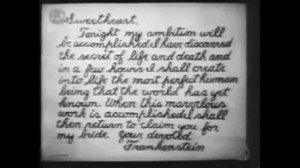 Sweetheart,
Tonight my ambition will
be accomplished. I have discovered
the secret of life and death and
in a few hours I shall create
into life the most perfect human
being that the world has yet
known. When this marvelous
work is accomplished I shall
then return to claim you for
my bride. Your devoted
Frankenstein